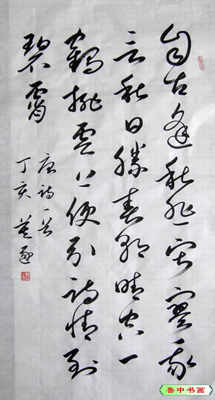 自古逢秋悲寂寥我
言秋日勝春朝晴空一
鶴排雲上便引詩情到
碧霄
唐詩一首
丁亥
鲁中书画